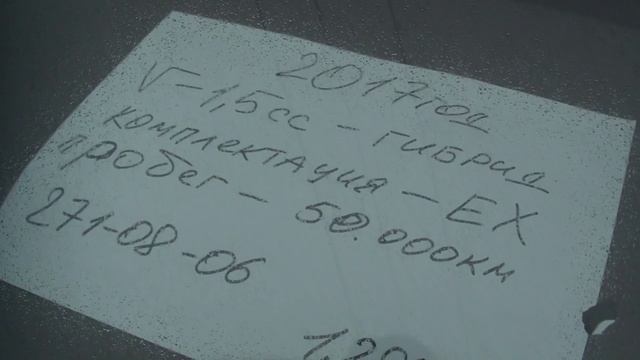 2017год
V-1,5cc - гибрид
комплектация - EX
пробег - 50.000км
271-08-06